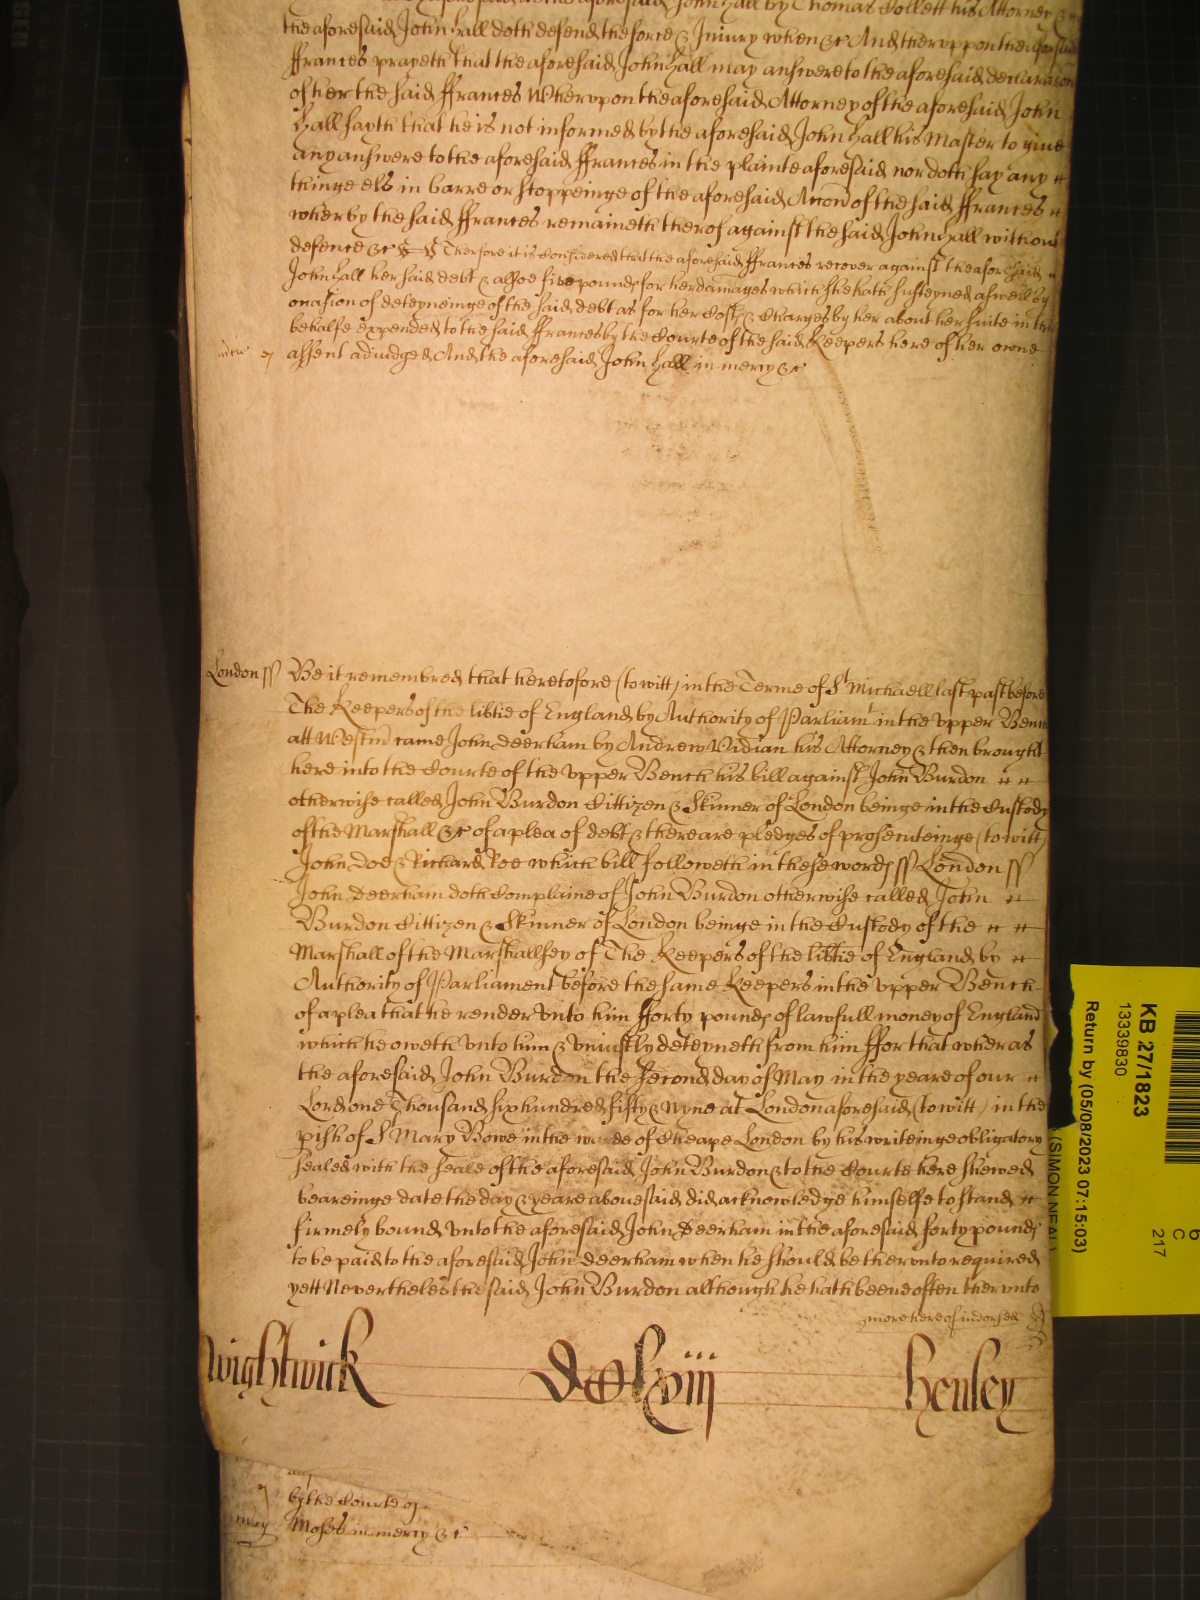 the aforesaid John Hall doth defend the force & Iniury when &c And thervppon the aforesaid
ffrances prayeth that the aforesaid John Hall may answere to the aforesaid declaracon
of her the said ffrances Whervpon the aforesaid Attorney of the aforesaid John
Hall sayth that he is not informed by the aforesaid John Hall his Master to give
any answere to the aforesaid ffrances in the plainte aforesaid nor doth say any
thinge els in barre or stoppeinge of the aforesaid Accon of the said ffrances
wherby the said ffrances remaineth therof against the said John Hall without
defence &c Therfore it is Considered that the aforesaid ffrances recover against the aforesaid
John Hall her said debt & alsoe five pounds for her damages which she hath susteyned aswell by
occasion of deteyneinge of the said debt as for her Costs & Charges by her about her suite in this
behalfe expended to the said ffrances by the Courte of the said Keepers here of her owne
assent adiudged And the aforesaid John Hall in mercy &c
London ss Be it remembred that heretofore (to witt) in the Terme of St Michaell last past before
The Keepers of the libtie of England by Authority of Parliamt in the vpper Bench
att Westm came John Deerham by Andrew Vidian his Attorney & then brought
here into the Courte of the vpper Bench his bill against John Burdon
otherwise called John Burdon Cittizen & Skinner of London beinge in the Custody
of the Marshall &c of a plea of debt & there are pledges of prosecuteinge (to witt)
John Doe & Richard Roe which bill followeth in these words ss London ss
John Deerham doth Complaine of John Burdon otherwise called John
Burdon Cittizen & Skinner of London beinge in the Custody of the
Marshall of the Marshallsey of The Keepers of the libtie of England by
Authority of Parliament before the same Keepers in the vpper Bench
of a plea that he render vnto him fforty pounds of lawfull money of England
which he oweth vnto him & vniustly deteyneth from him ffor that wheras
the aforesaid John Burdon the second day of May in the yeare of our
Lord one Thousand six hundred fifty & Nyne at London aforesaid (to witt) in the
pish of St Mary Bowe in the warde of Cheape London by his writeinge obligatory
sealed with the seale of the aforesaid John Burdon & to the Courte here shewed
beareinge date the day & yeare abovesaid did acknowledge himselfe to stand
firmely bound vnto the aforesaid John Deerham in the aforesaid forty pounds
to be paid to the aforesaid John Deerham when he should be thervnto required
yett Nevertheles the said John Burdon although he hath beene often thervnto
more hereof indorsed
Wightwick
Henley
by the Courte
Moses in mercy &c
KB 27/1823
13339830
Return by (05/08/2023 07:15:03)
(SIMON NEAL)
C
217